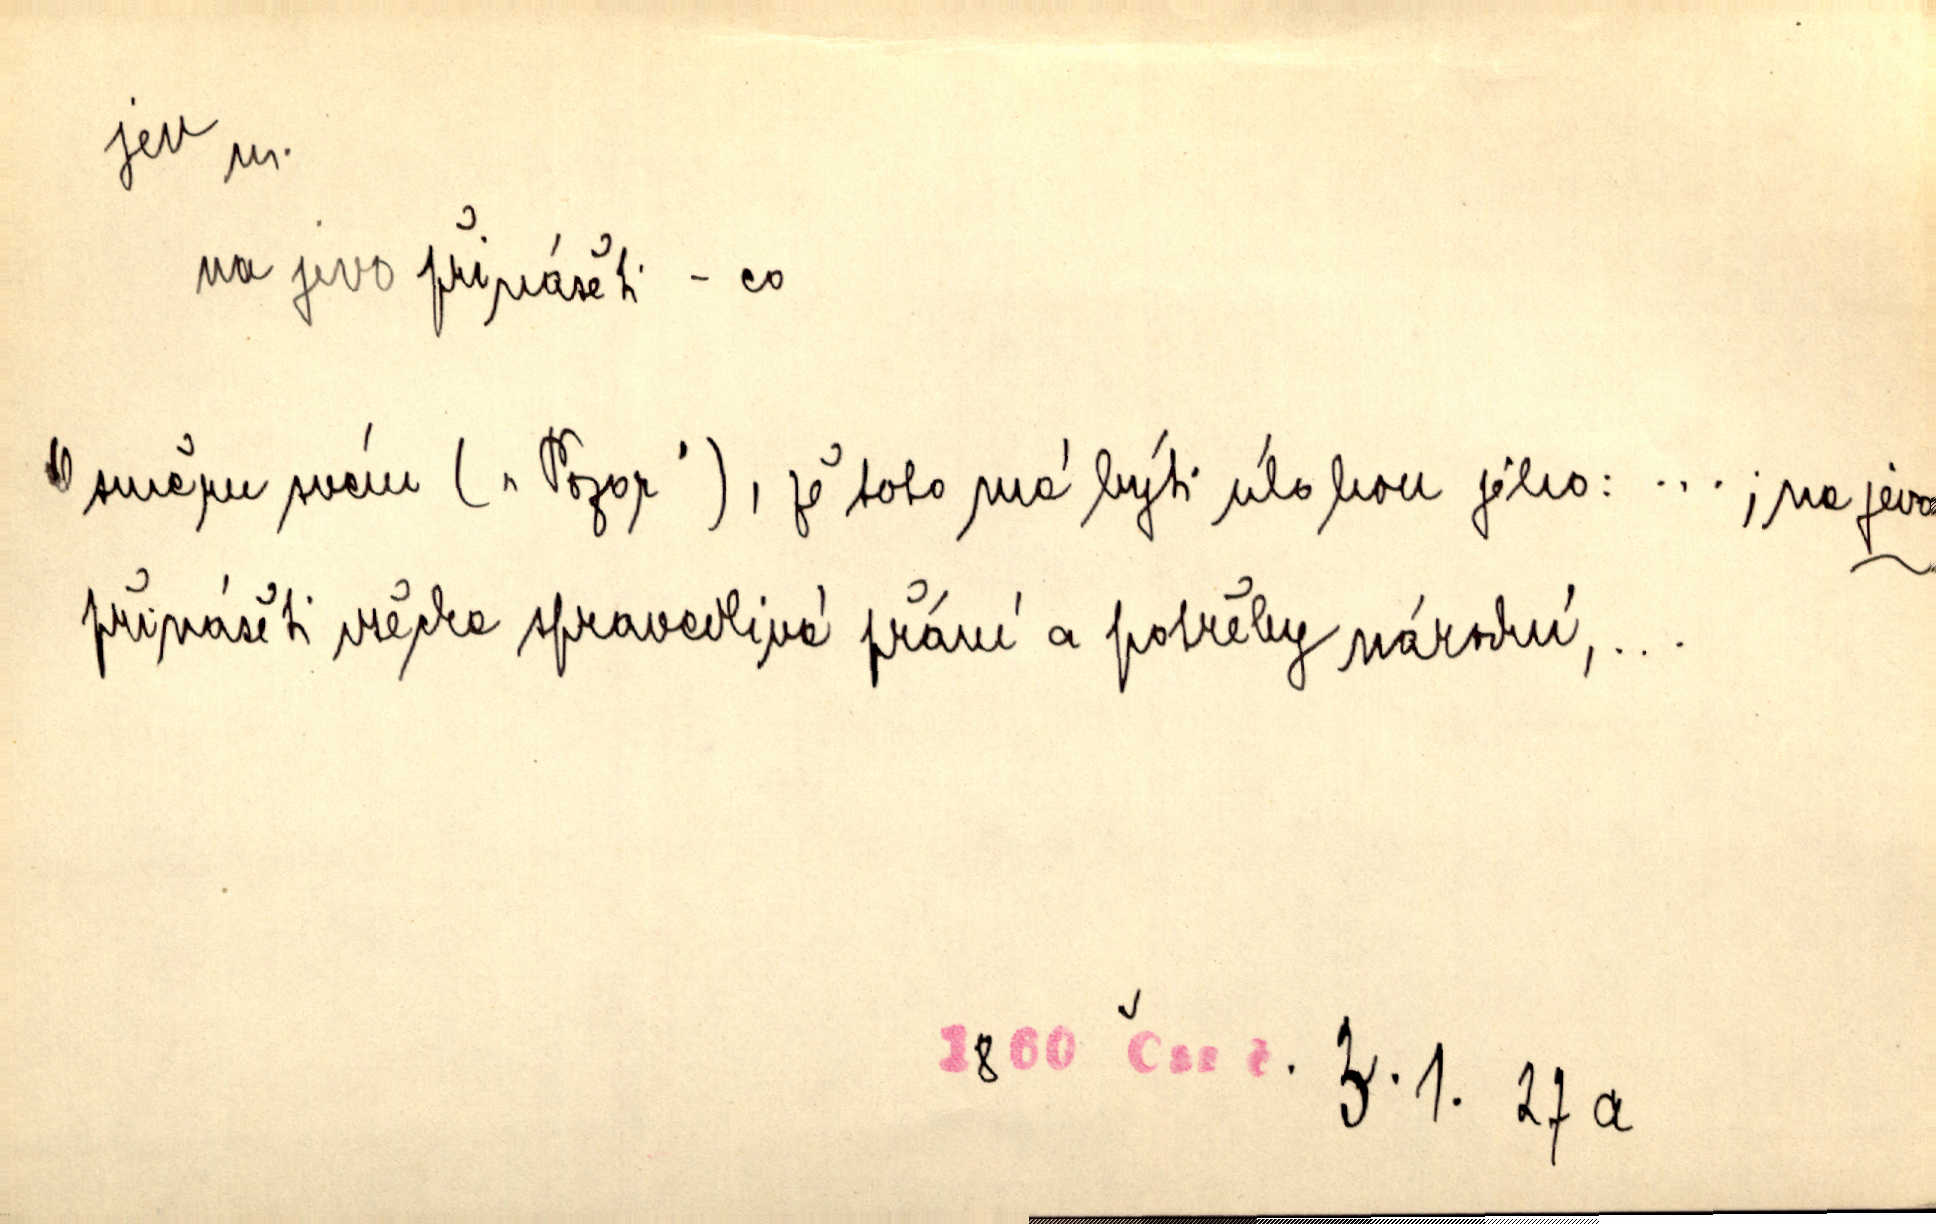 jev m.
na jevo přinášeti - co
O směru svém („Pozor“), že toto má býti úlohou jeho: ...; na jevo
přinášeti všecka spravedlivá přání a potřeby národní, ...
1860 Čas č. 3. 1. 27 a